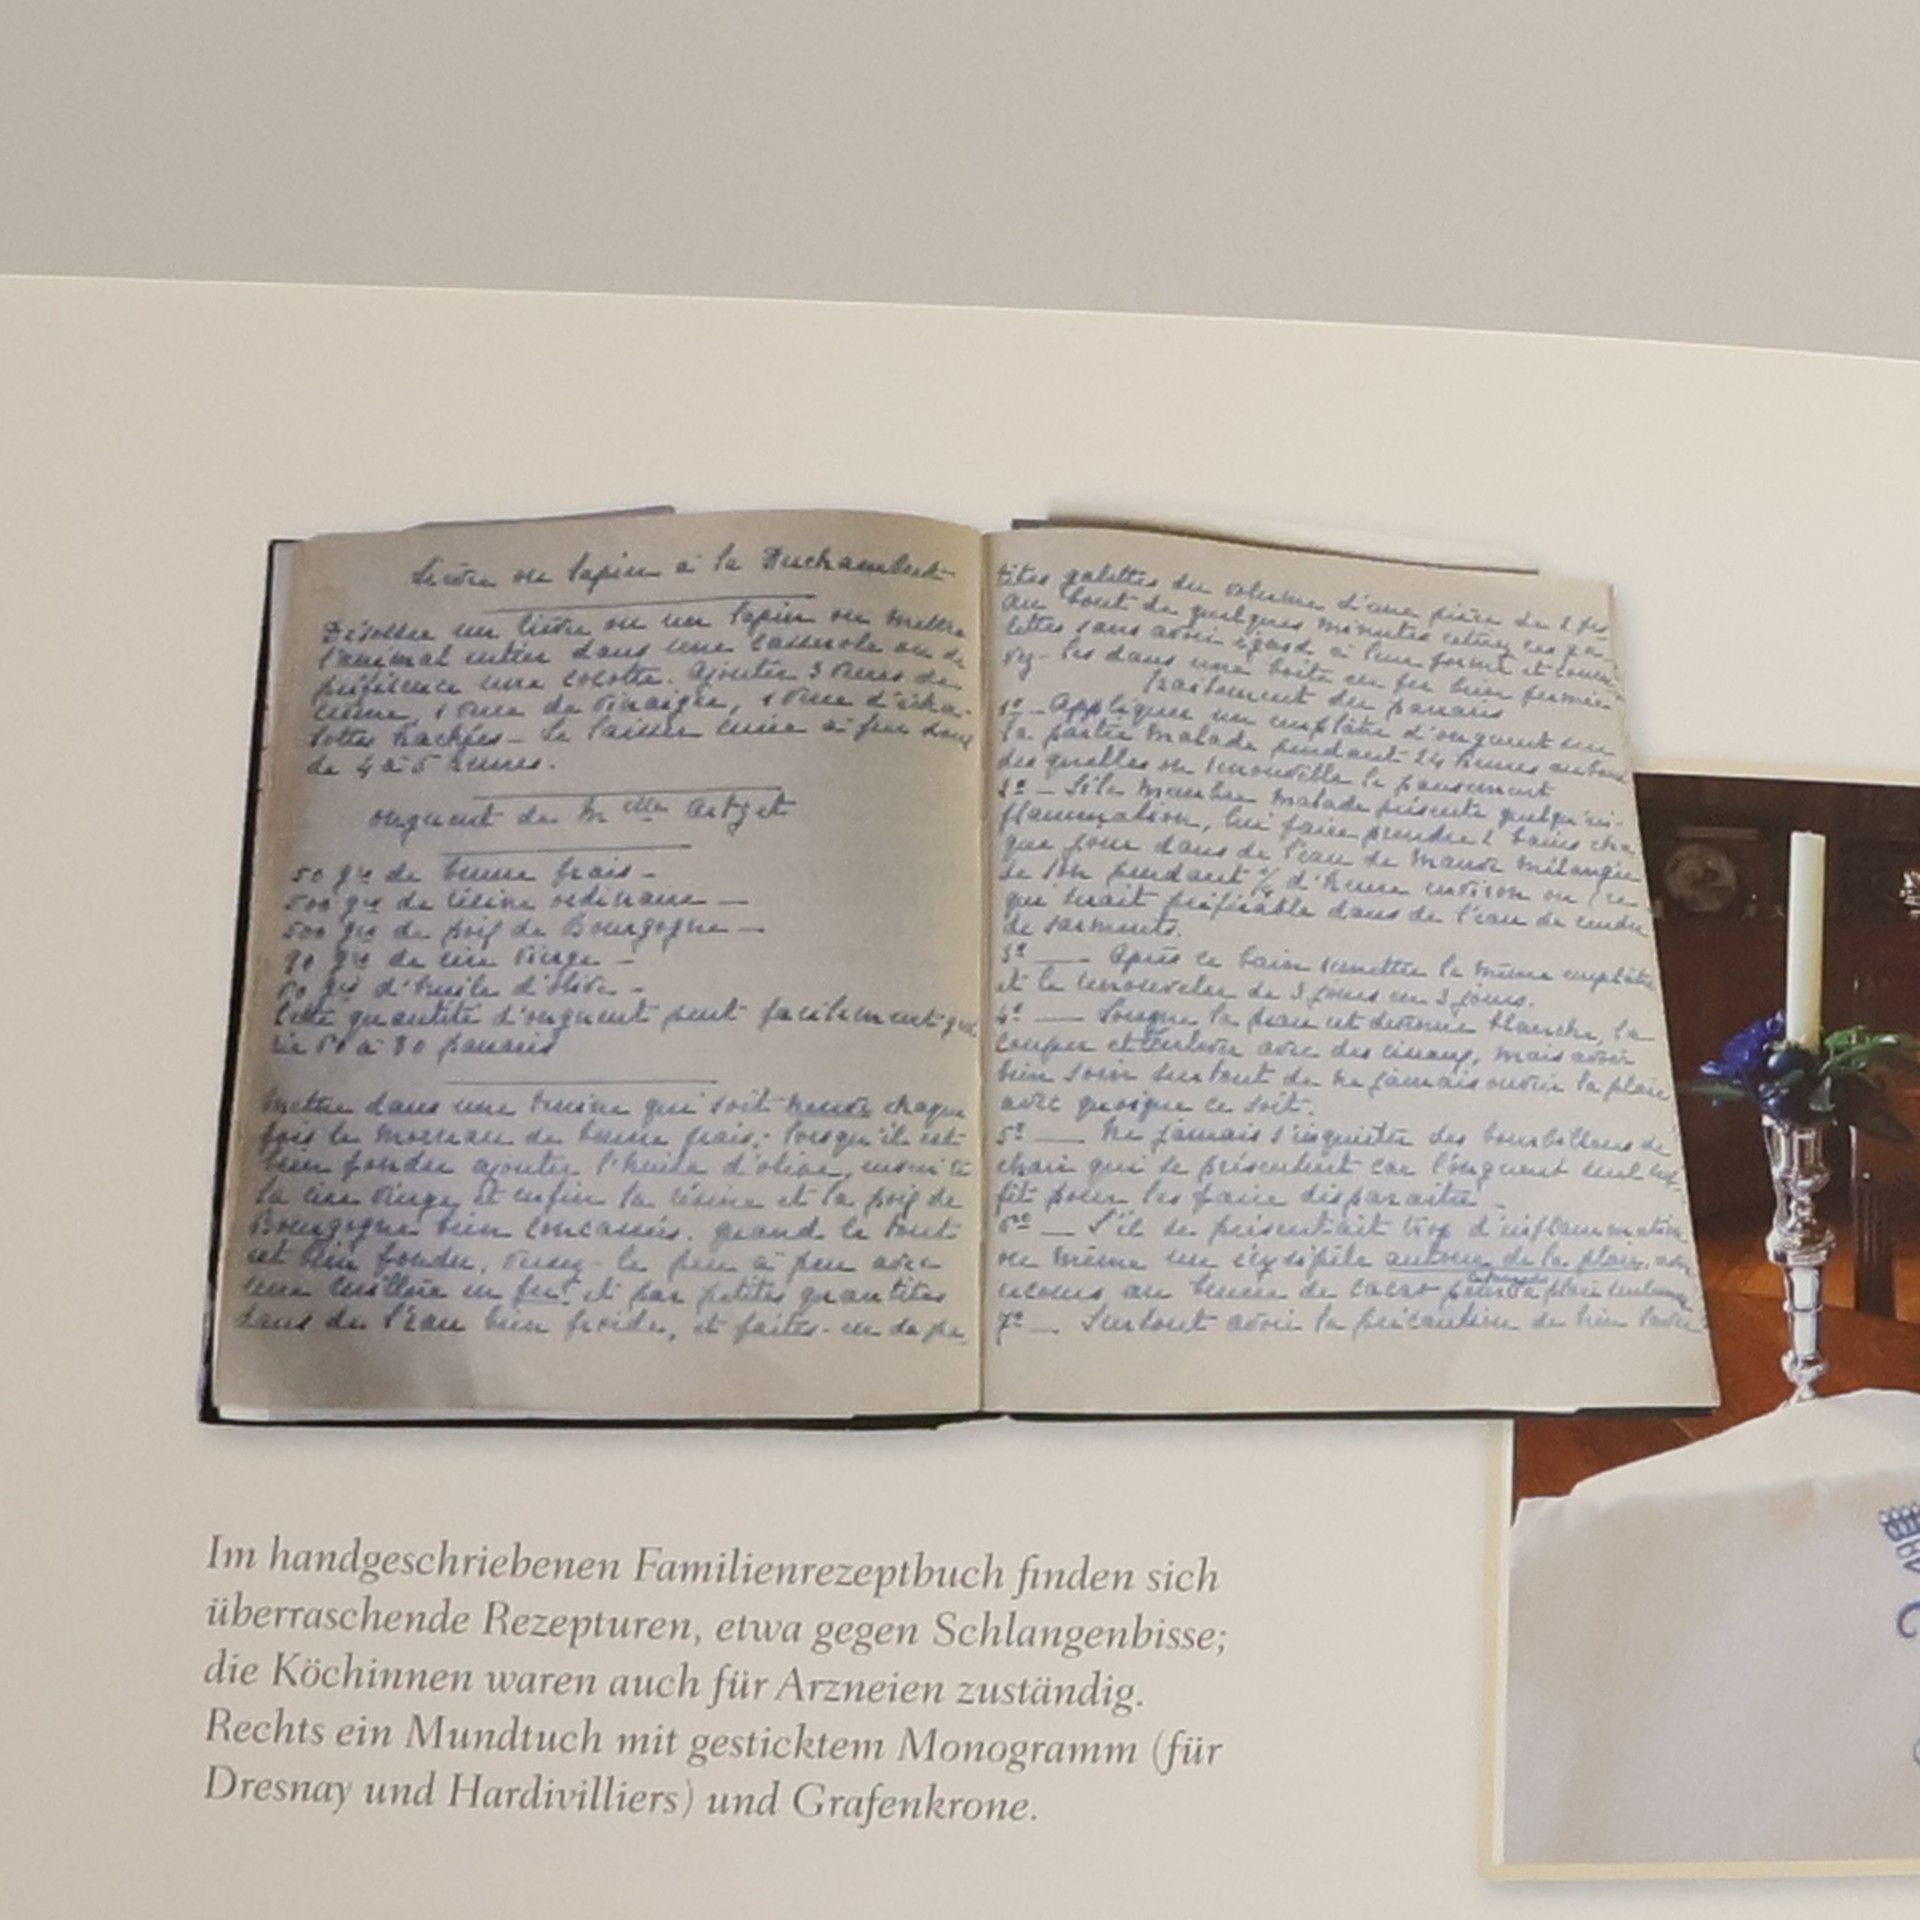 Lièvre ou lapin à la Duchambert
Désosser un lièvre ou un lapin ou mettre
l'animal entier dans une casserole ou de
préférence une cocotte. Ajouter 3 verres de
crème, 1 verre de vinaigre, 1 verre d'écha-
lottes hachées – Le laisser cuire à feu doux
de 4 à 5 heures.
onguent de Melle
50 grs de beurre frais –
500 grs de résine ordinaire –
500 grs de poix de Bourgogne –
90 grs de cire vierge –
grs d'huile d'olive –
Cette quantité d'onguent peut facilement gué
rir à 80 panaris
Mettre dans une bassine qui soit neuve chaque
fois le morceau de beurre frais; lorsqu'il est
bien fondu ajouter l'huile d'olive, ensuite
la cire vierge et enfin la résine et la poix de
Bourgogne bien concassés. quand le tout
est bien fondu, versez-le peu à peu avec
une cuillère en fer et par petites quantités
dans de l'eau bien froide, et faites-en de pe
tites galettes du volume d'une pièce de 2 frs
Au bout de quelques minutes retirez ces ga-
lettes sans avoir égard à leur forme et conser
vez-les dans une boîte en fer bien fermée
Traitement du panaris
1º – Appliquer un emplâtre d'onguent sur
la partie malade pendant 24 heures au bout
des quelles on renouvelle le pansement
2º – Si le membre malade présente quelqu'in-
flammation, lui faire prendre 2 bains cha
que jour dans de l'eau de mauve mélangée
de son pendant d'heure environ ou (ce
qui serait préférable dans de l'eau de cendre
de sarments.
3º – Après ce bain remettre le même emplâtre
et le renouveler de 3 jours en 3 jours.
4º – Lorsque la peau est devenue blanche, la
couper et l'enlever avec des ciseaux, mais avoir
bien soin surtout de ne jamais ouvrir la plaie
avec quoique ce soit.
5º – Ne jamais s'inquiéter des bourbillons de
chair qui se présentent car l'onguent seul suf-
fit pour les faire disparaître –
6º – S'il se présentait trop d'inflammation
ou même un érysipèle autour de la plaie, avoir
recours au beurre de cacao
7º – Surtout avoir la précaution de bien laver
Im handgeschriebenen Familienrezeptbuch finden sich
überraschende Rezepturen, etwa gegen Schlangenbisse;
die Köchinnen waren auch für Arzneien zuständig.
Rechts ein Mundtuch mit gesticktem Monogramm (für
Dresnay und Hardivilliers) und Grafenkrone.